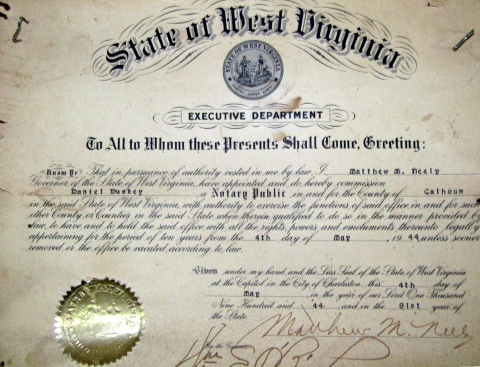 State of West Virginia
STATE OF WEST VIRGINIA
EXECUTIVE DEPARTMENT
To All to Whom these Presents Shall Come, Greeting:
Know Ye That in pursuance of authority vested in me by law I Matthew M. Neely
Governor of the State of West Virginia, have appointed and do hereby commission
Daniel Duskey a Notary Public in and for the County of Calhoun
in the said State of West Virginia, with authority to exercise the functions of said office in and for such
other County or Counties in the said State when therein qualified to do so in the manner provided by
law, to have and to hold the said office with all the rights, powers and emoluments thereunto legally
appertaining for the period of ten years from the 4th day of May, 1944 unless sooner
removed or the office be vacated according to law.
Given under my hand and the Less Seal of the State of West Virginia
at the Capitol in the City of Charleston, this 4th day of
May in the year of our Lord One Thousand
Nine Hundred and 44 and in the 81st year of
the State.
Matthew M. Neely
By the Governor
Wm S